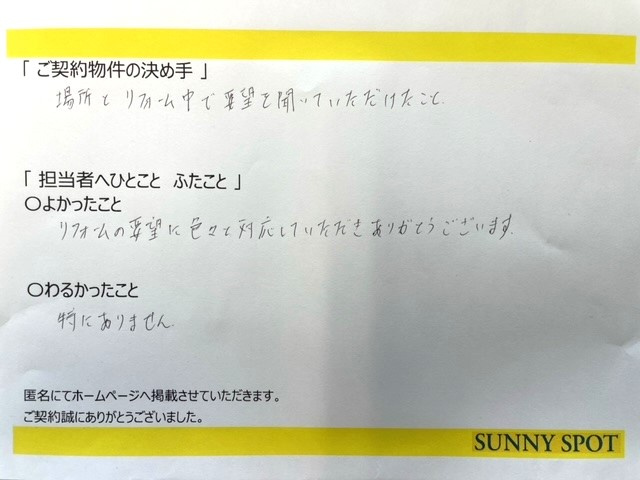 「 ご契約物件の決め手 」
場所と リフォーム中で要望を聞いていただけたこと。
「 担当者へひとこと ふたこと 」
〇よかったこと
リフォームの要望に色々と対応していただきありがとうございます。
〇わるかったこと
特にありません。
匿名にてホームページへ掲載させていただきます。
ご契約誠にありがとうございました。
SUNNY SPOT